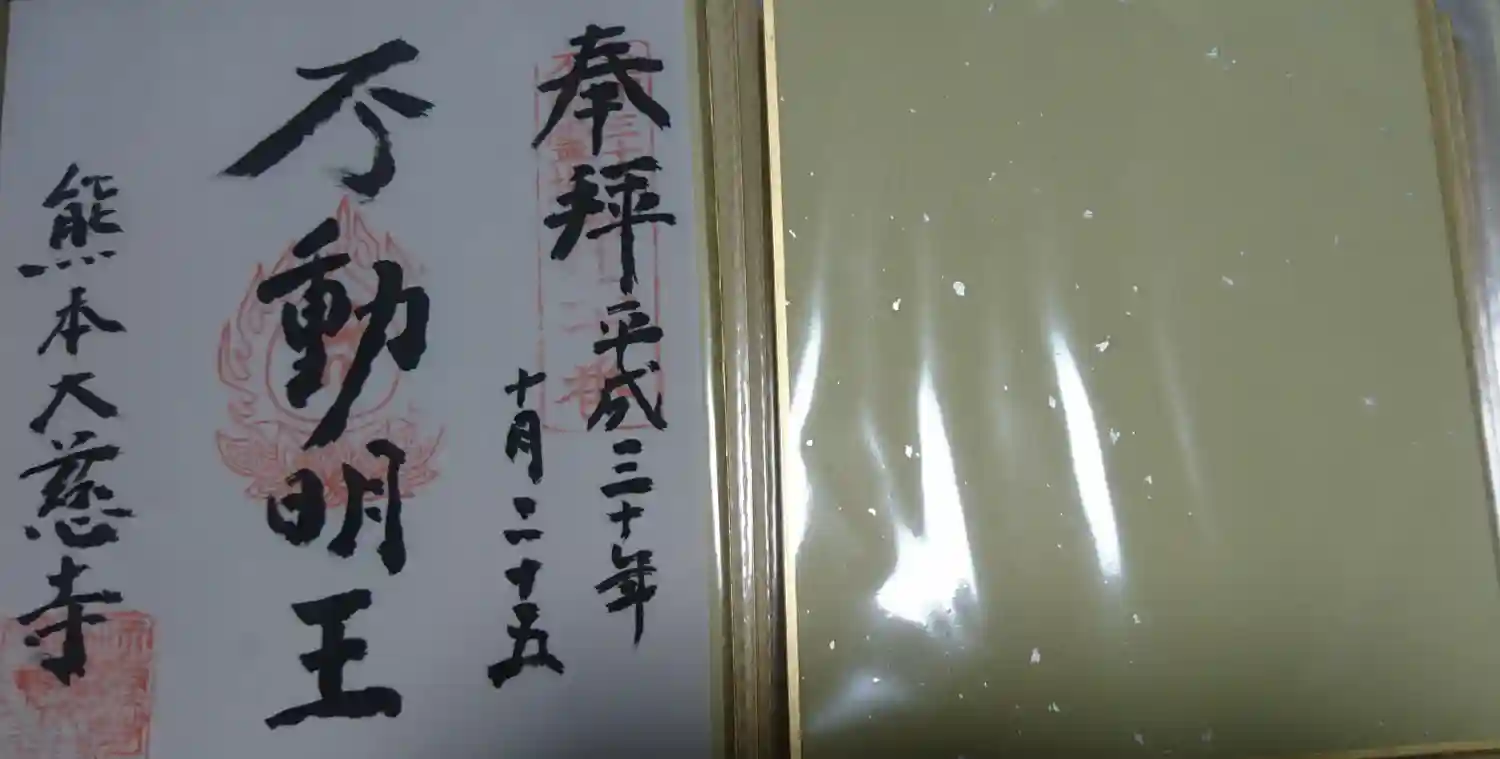 奉拝 平成三十年
十月二十五
不動明王
熊本大慈寺